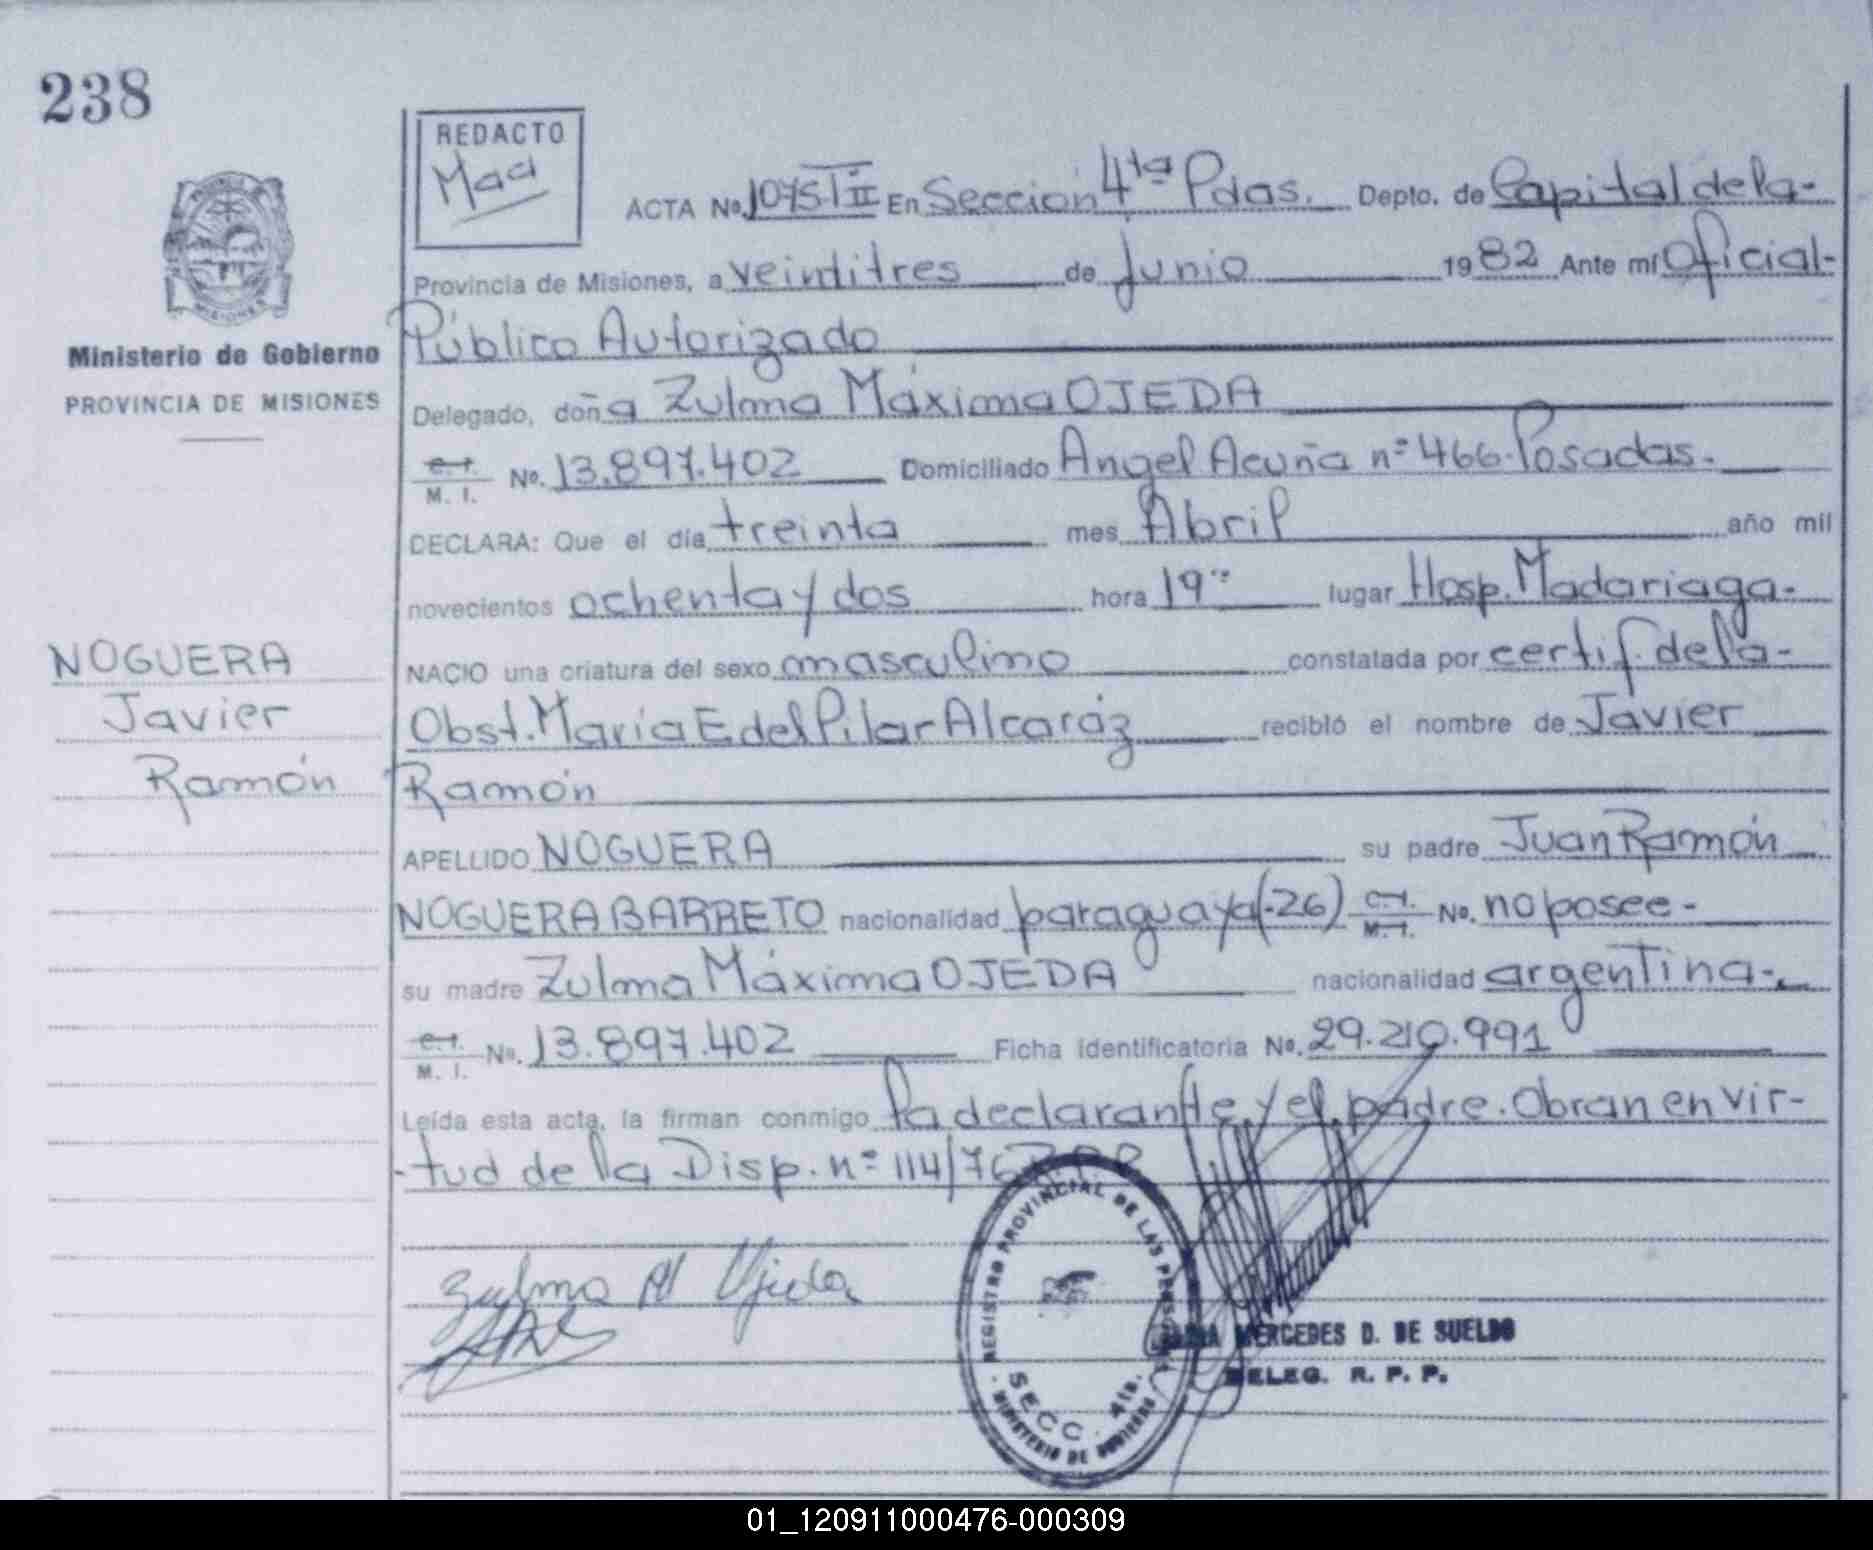 238
REDACTO
Mad
ACTA No. 1075 T II En Sección 4ta Pdas. Depto. de Capital de la-
Provincia de Misiones, a veintitres de Junio 1982 Ante mí Oficial-
Público Autorizado
Ministerio de Gobierno
PROVINCIA DE MISIONES
Delegado, doña Zulma Máxima OJEDA
C.I. M. I. No. 13.897.402 Domiciliado Angel Acuña nº 466-Posadas.
DECLARA: Que el día treinta mes Abril año mil
novecientos ochenta y dos hora 19 lugar Hosp. Madariaga-
NOGUERA
Javier
Ramón
NACIO una criatura del sexo masculino constatada por certif. de la-
Obst. María E del Pilar Alcaráz recibió el nombre de Javier
Ramón
APELLIDO NOGUERA su padre Juan Ramón
NOGUERA BARRETO nacionalidad paraguaya (-26) C.I. M.I. No. no posee-
su madre Zulma Máxima OJEDA nacionalidad argentina-
C.I. M. I. No. 13.897.402 Ficha identificatoria No. 29.210.991
Leída esta acta, la firman conmigo la declarante y el padre. Obran en vir-
-tud de la Disp. nº 114/76
Zulma M Ojeda
REGISTRO PROVINCIAL DE LAS PERSONAS
SECC. 4ta.
MINISTERIO DE GOBIERNO
MERCEDES D. DE SUELDO
DELEG. R. P. P.
01_120911000476-000309